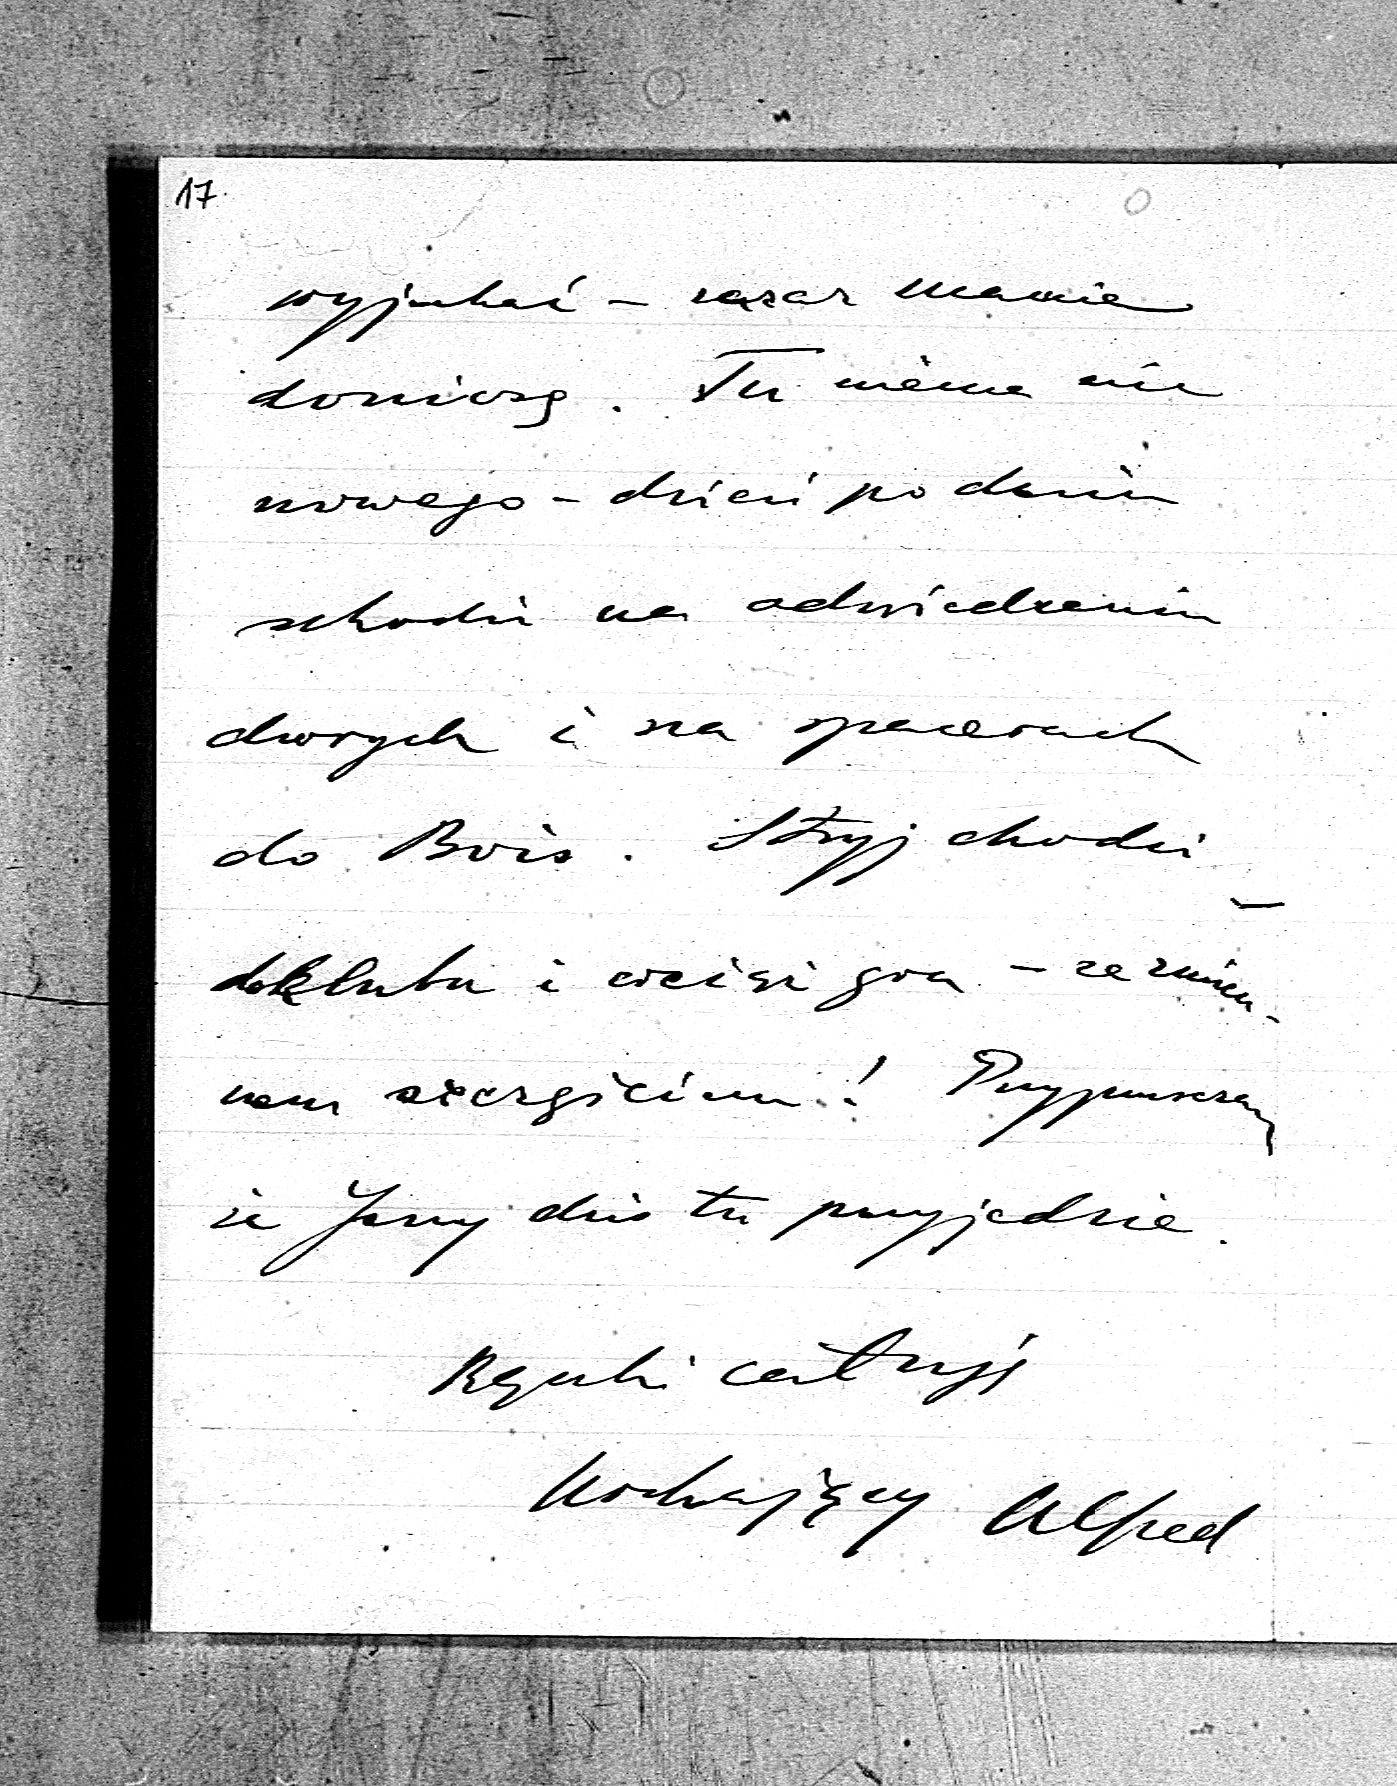 17.
wyjechać – zaraz Mamie
doniosę. Tu niema nic
nowego – dzień po dniu
schodzi na odwiedzaniu
chorych i na spacerach
do Bois. Stryj chodzi
do klubu i wciąż gra – ze zmien-
nem szczęściem! Przypuszczam
że Jerzy dziś tu przyjedzie.
Rączki całuję
Kochający Alfred